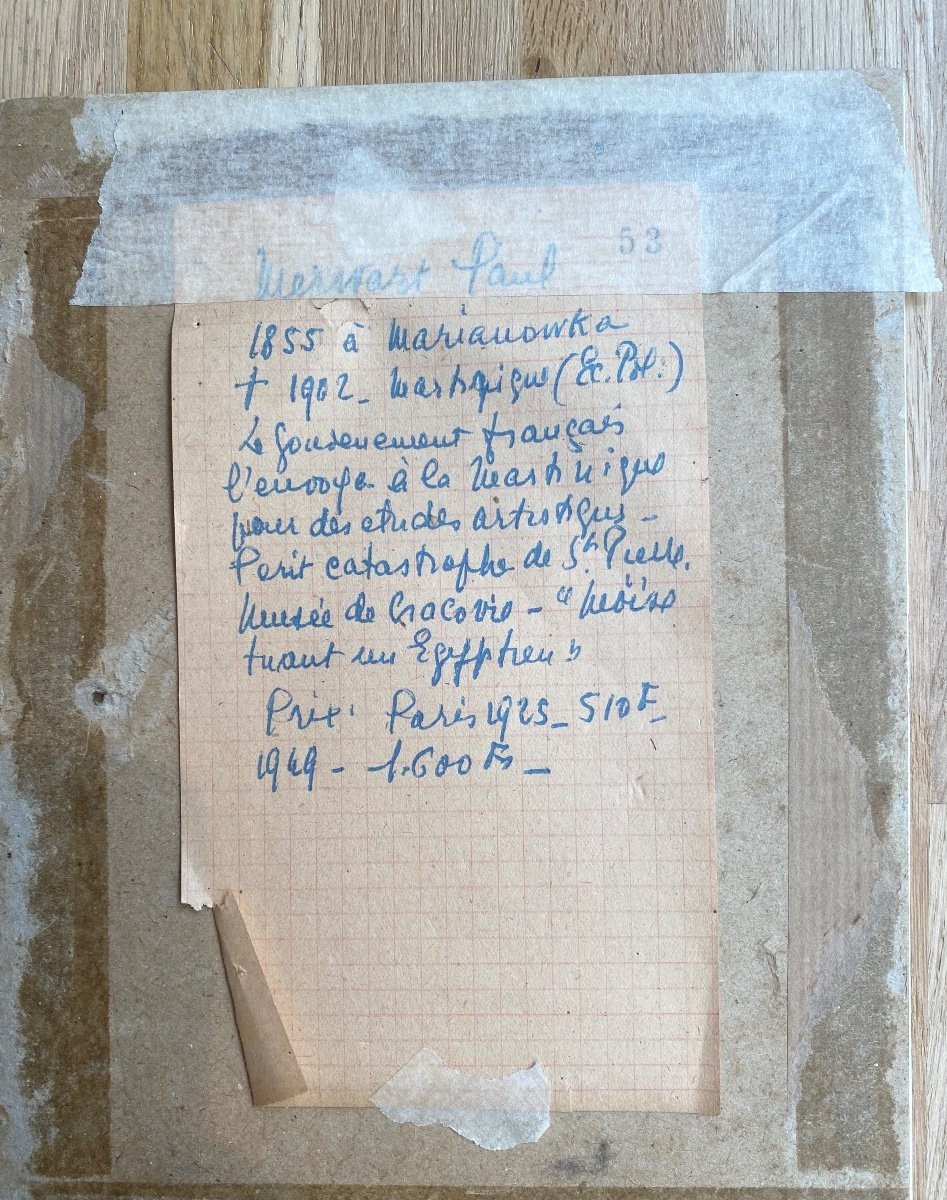 53
Merwart Paul
1855 à Marianowka
† 1902 - Martinique (Ec. Pol.)
Le gouvenement français
l'envoya à la Martinique
pour des etudes artistiques -
Perit catastrophe de St Pierre.
Musée de Cracovie - "Moïse
tuant un Egyptien"
Prix: Paris 1925 - 510 F -
1949 - 1.600 Frs -